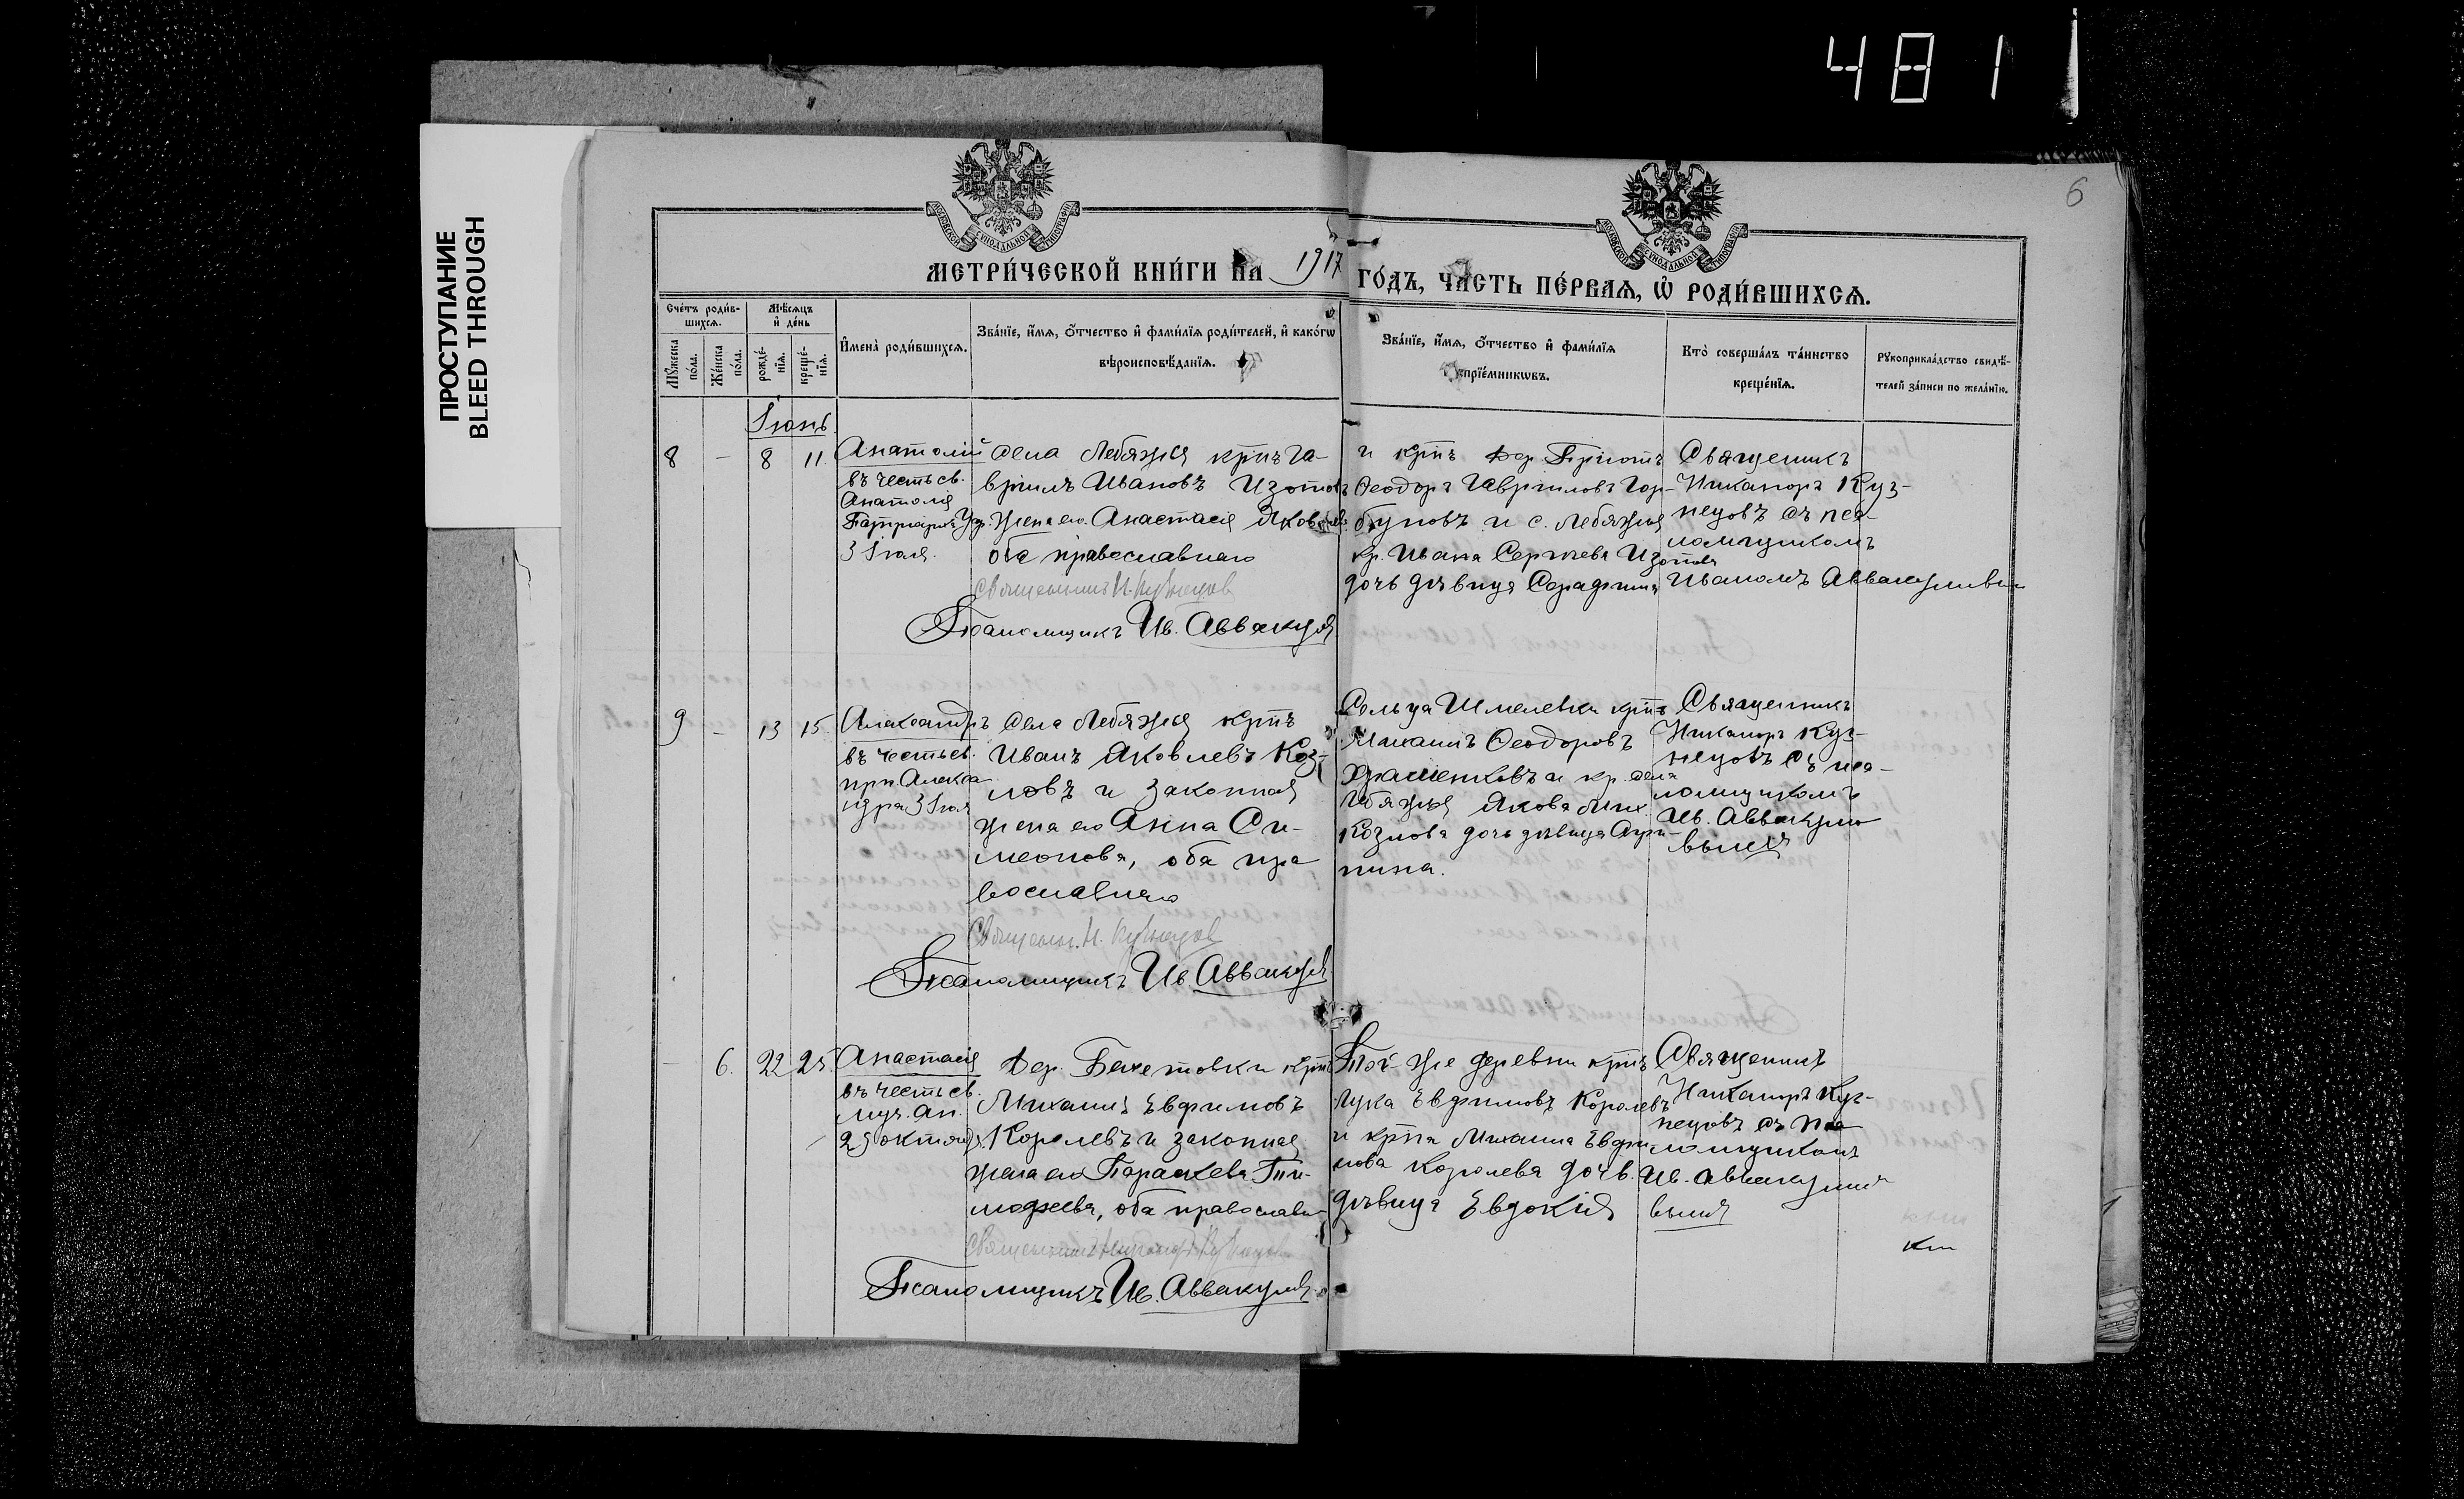 481
ПРОСТУПАНИЕ
BLEED THROUGH
6
МОСКОВСКОЙ СѴНОДАЛЬНОЙ ТИПОГРАФІИ
МОСКОВСКОЙ СѴНОДАЛЬНОЙ ТИПОГРАФІИ
МЕТРИ́ЧЕСКОЙ КНИ́ГИ НА 1917 ГО́ДЪ, ЧА́СТЬ ПЕ́РВАѦ, Ѡ҆ РОДИ́ВШИХСѦ.
Сче́тъ роди́в-
шихсѧ.
Мѣ́сѧцъ
и҆ де́нь
Мꙋ́жеска
по́ла.
Же́нска
по́ла.
рожде́-
нїѧ.
креще́-
нїѧ.
И҆мена̀ роди́вшихсѧ.
Зва́нїе, и҆́мѧ, ѻ҆́тчество и҆ фами́лїѧ роди́телей, и҆ како́гѡ
вѣроисповѣ́данїѧ.
Зва́нїе, и҆́мѧ, ѻ҆́тчество и҆ фами́лїѧ
прїе́мникѡвъ.
Кто̀ соверша́лъ та́инство
креще́нїѧ.
Рꙋкоприкла́дство свидѣ́-
телей за́писи по жела́нїю.
Іюнь.
8 – 8 11
Анатолій
въ честь св.
Анатолія
Патріарха
3 Іюля.
села Лебяжья крнъ Га-
вріилъ Ивановъ Изотовъ
жена его Анастасія Яковлев
оба православнаго
Священникъ Н. Кузнецов
Псаломщикъ Ив. Аввакумов
и крнъ дер.
Ѳеодоръ Гавріиловъ Гор-
буновъ и с. Лебяжья
кр. Ивана Сергѣева Изотова
дочь дѣвица Серафима
Священникъ
Никаноръ Куз-
нецовъ съ пса-
ломщикомъ
Иваномъ Аввакумовым
9 – 13 15
Александръ
въ честь св.
прп Алекса
ндра 3 Іюл
Села Лебяжья крнъ
Иванъ Яковлевъ Коз-
ловъ и законная
жена его Анна Си-
меонова, оба пра
вославнаго
Священ. Н. Кузнецов
Псаломщикъ Ив Аввакумов
Сельца Шмелевки крнъ
Михаилъ Ѳеодоровъ
Храменковъ и кр. села
Лебяжья Якова Мих
Козлова дочь дѣвица Агри-
пина.
Священникъ
Никаноръ Куз-
нецовъ съ пса-
ломщикомъ
Ив. Аввакумо
вымъ
– 6. 22 25.
Анастасія
въ честь св.
муч. Ан.
29 октября
Дер. Бахметовки крнъ
Михаилъ Евфимовъ
Королевъ и законная
жена его Параскева Ти-
моѳеева, оба православн
Священникъ Никаноръ Кузнецов
Псаломщикъ Ив. Аввакумов
Той-же деревни крнъ
Лука Евфимовъ Королевъ
и крна Михаила Евфи-
мова Королева дочь.
дѣвица Евдокія
Священникъ
Никаноръ Куз-
нецовъ съ пса
ломщикомъ
Ив. Аввакумо
вымъ